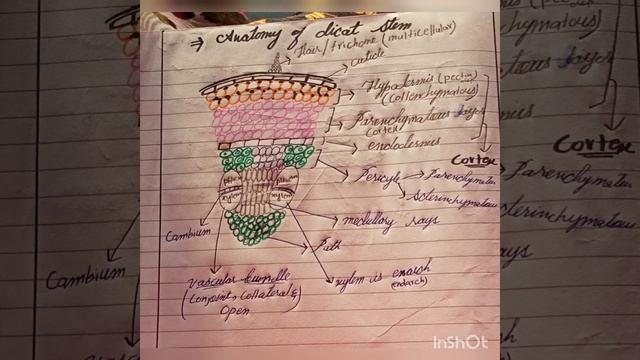 ⇒ Anatomy of dicat stem
Hair/trichome (multicellular)
cuticle
Hypodermis (pectin)
(Collenchymatous)
Parenchymatous layer
cortex
endodermis
Cortex
Pericycle → Parenchymatous
Sclerenchymatous
xylem
xylem
medullary rays
Cambium
Pith
Vascular bundle
(Conjoint, Collateral &
Open)
xylem is enarsh
(endarch)
InShOt